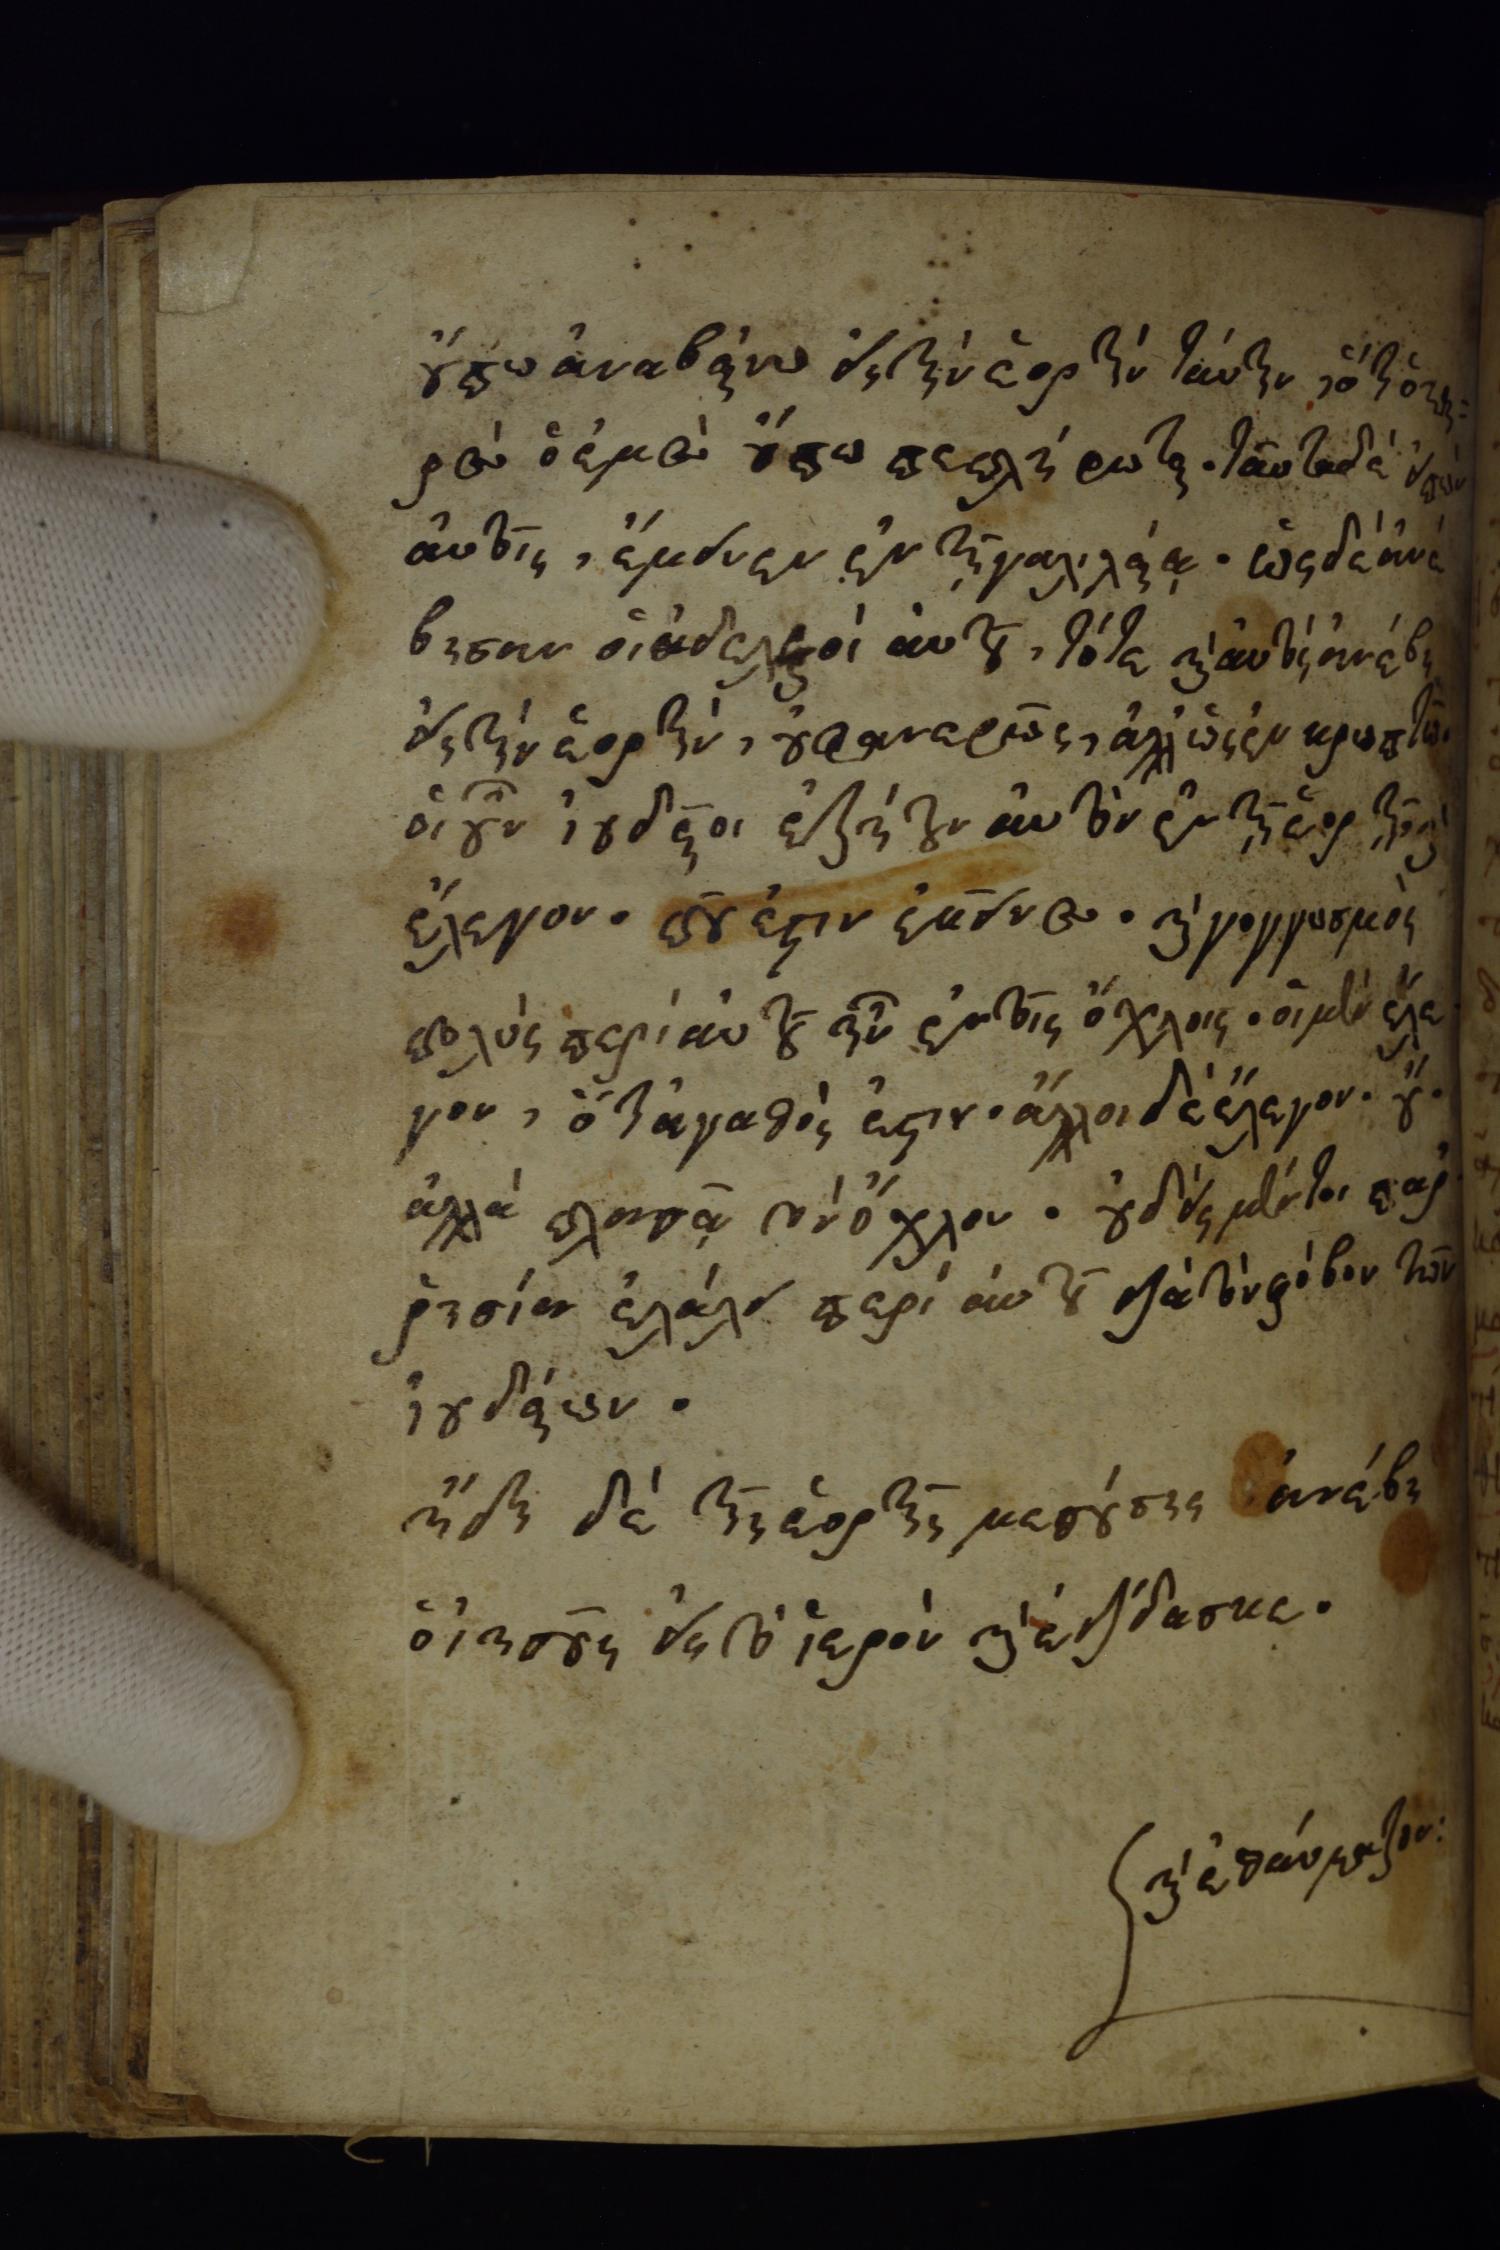 οὔπω ἀναβαίνω εἰς τὴν ἑορτὴν ταύτην, ὅτι ὁ και-
ρὸς ὁ ἐμὸς οὔπω πεπλήρωται. ταῦτα δὲ εἰπὼν
αὐτοῖς, ἔμεινεν ἐν τῇ γαλιλαίᾳ. ὡς δὲ ἀνέ
βησαν οἱ ἀδελφοί αὐτοῦ, τότε καὶ αὐτὸς ἀνέβη
εἰς τὴν ἑορτὴν, οὐ φανερῶς, ἀλλ' ὡς ἐν κρυπτῷ.
οἱ οὖν ἰουδαῖοι ἐζήτουν αὐτὸν ἐν τῇ ἑορτῇ καὶ
ἔλεγον. ποῦ ἐστιν ἐκεῖνος. καὶ γογγυσμὸς
πολὺς περὶ αὐτοῦ ἦν ἐν τοῖς ὄχλοις. οἱ μὲν ἔλε
γον, ὅτι ἀγαθός ἐστιν. ἄλλοι δὲ ἔλεγον. οὔ.
ἀλλὰ πλανᾷ τὸν ὄχλον. οὐδεὶς μέντοι παρ
ρησίαν ἐλάλει περὶ αὐτοῦ διὰ τὸν φόβον τῶν
ἰουδαίων.
ἤδη δὲ τῆς ἑορτῆς μεσούσης ἀνέβη
ὁ ἰησοῦς εἰς τὸ ἱερὸν καὶ ἐδίδασκε.
καὶ ἐθαύμαζον: